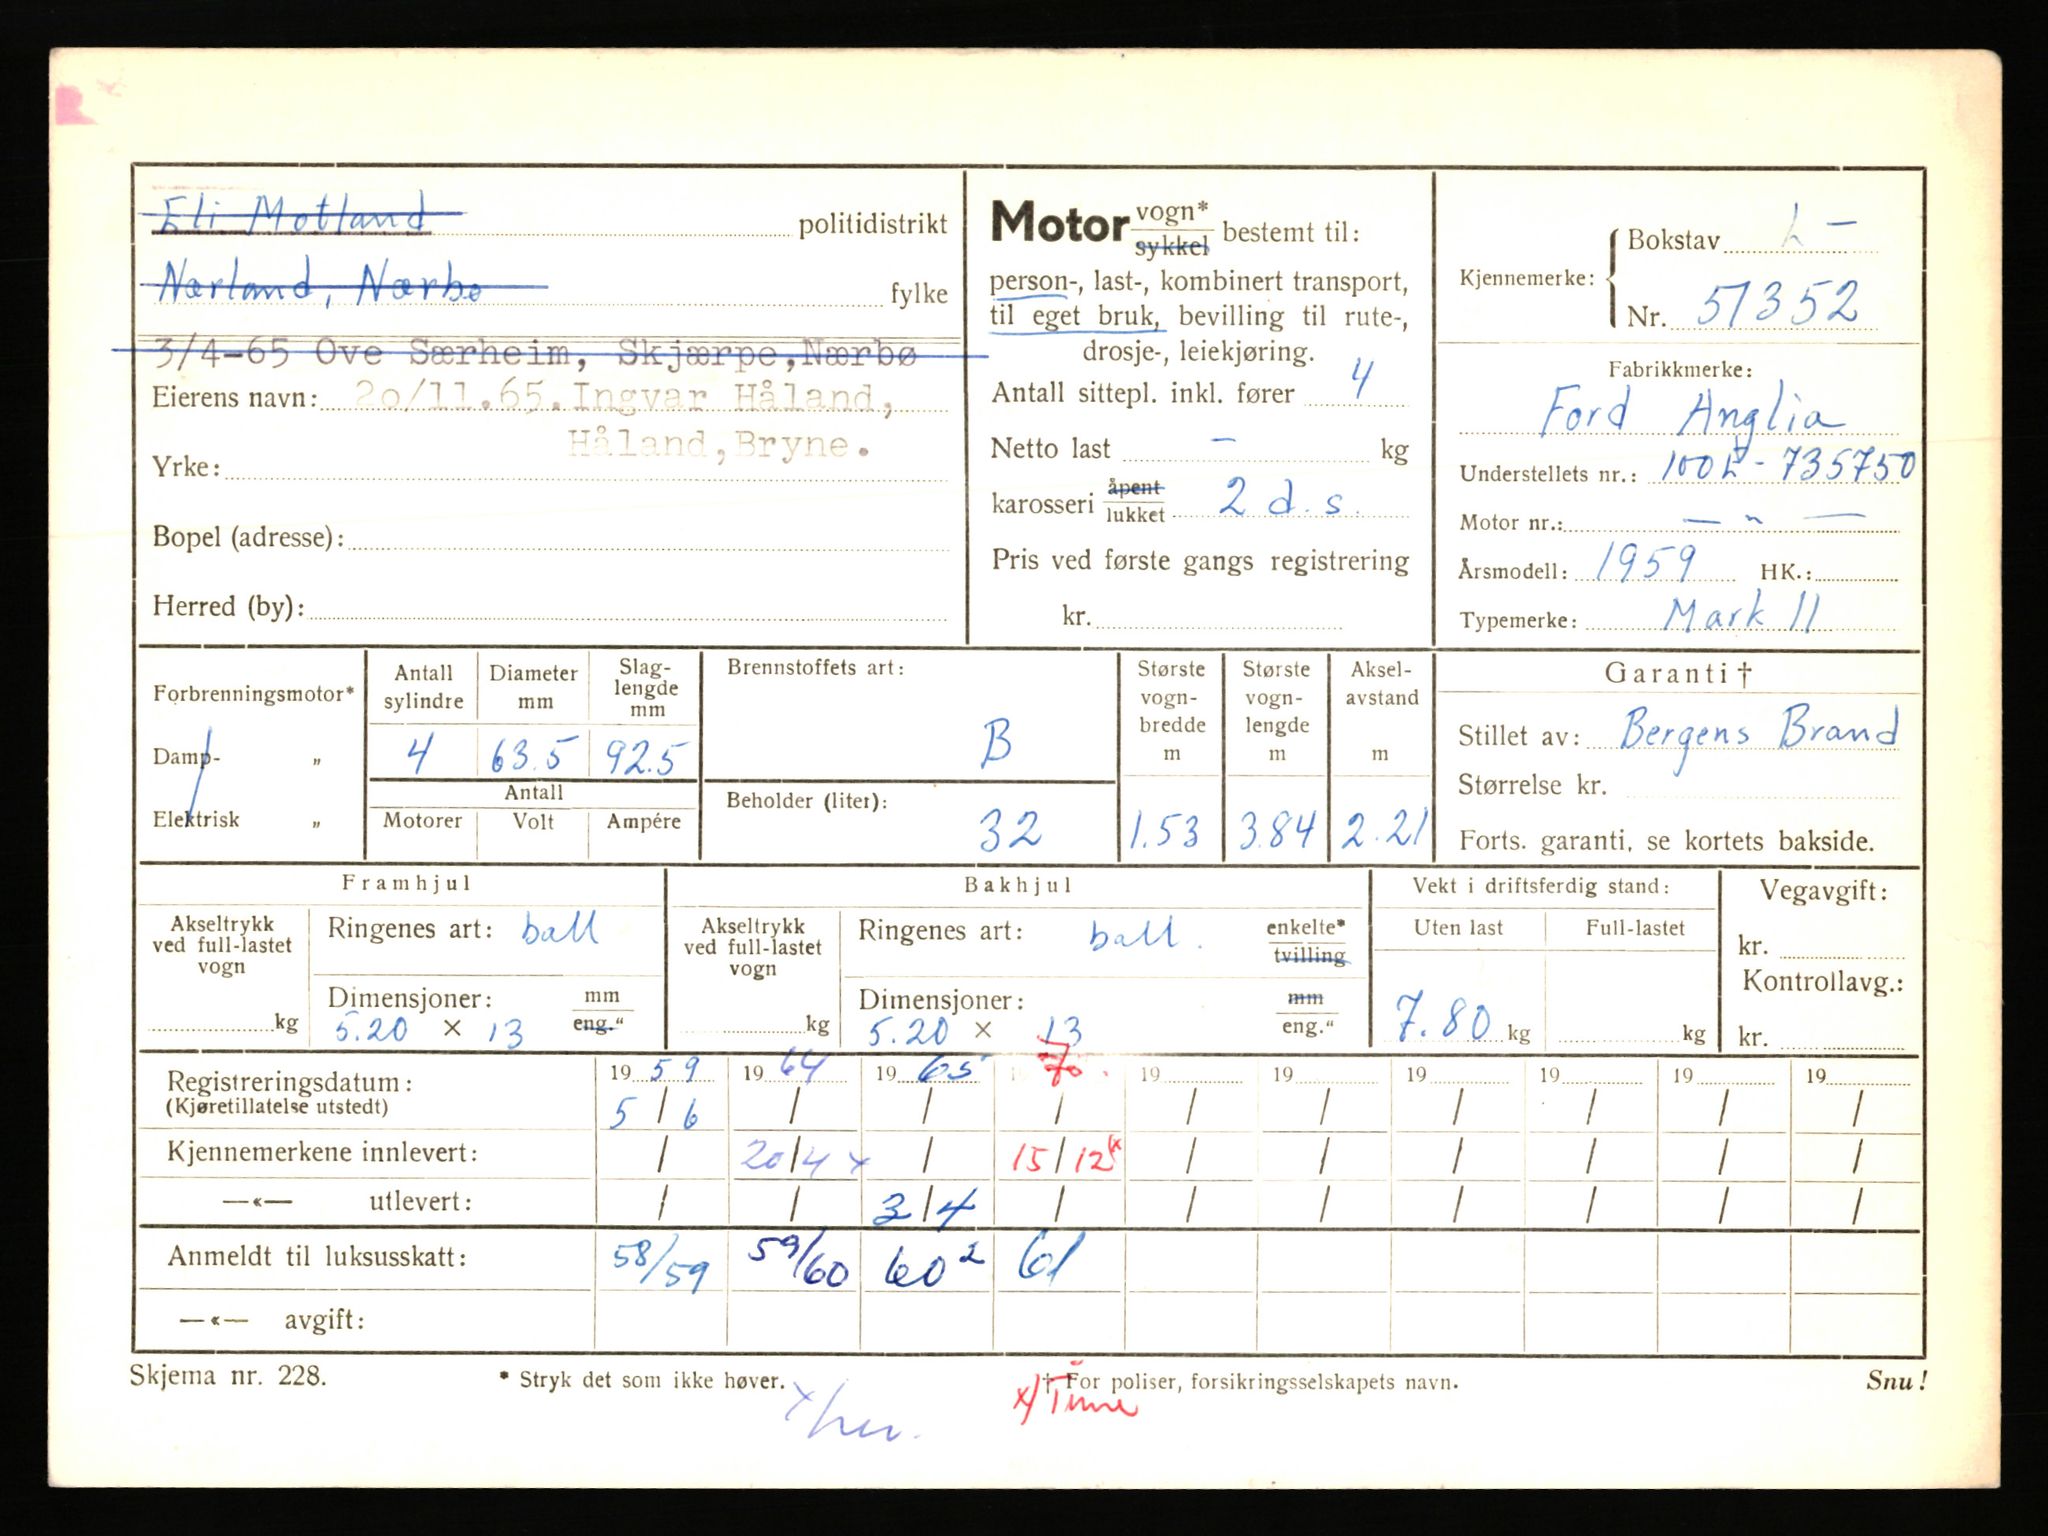 Eli Motland politidistrikt
Nærland, Nærbø fylke
3/4-65 Ove Særheim, Skjærpe, Nærbø
Eierens navn: 20/11.65. Ingvar Håland,
Håland, Bryne.
Yrke:
Bopel (adresse):
Herred (by):
Motor vogn* sykkel bestemt til:
person-, last-, kombinert transport,
til eget bruk, bevilling til rute-,
drosje-, leiekjøring.
Antall sittepl. inkl. fører 4
Netto last - kg
karosseri åpent lukket 2 d.s.
Pris ved første gangs registrering
kr.
Kjennemerke: Bokstav L -
Nr. 51352
Fabrikkmerke:
Ford Anglia
Understellets nr.: 100E-735750
Motor nr.: — " —
Årsmodell: 1959 HK.:
Typemerke: Mark II
Forbrenningsmotor*
Damp- „
Elektrisk „
Antall sylindre
Diameter mm
Slag-lengde mm
4 63.5 92.5
Antall
Motorer Volt Ampére
Brennstoffets art:
B
Beholder (liter):
32
Største vogn-bredde m
1.53
Største vogn-lengde m
3.84
Aksel-avstand m
2.21
Garanti †
Stillet av: Bergens Brand
Størrelse kr.
Forts. garanti, se kortets bakside.
Framhjul
Akseltrykk
ved full-lastet
vogn
kg
Ringenes art: ball
Dimensjoner: mm eng."
5.20 × 13
Bakhjul
Akseltrykk
ved full-lastet
vogn
kg
Ringenes art: ball. enkelte* tvilling
Dimensjoner: mm eng."
5.20 × 13
Vekt i driftsferdig stand:
Uten last Full-lastet
7.80 kg kg
Vegavgift:
kr.
Kontrollavg.:
kr.
Registreringsdatum: 19 59 19 64 19 65 70. 19 19 19 19 19 19
(Kjøretillatelse utstedt) 5/6 / / / / / / / / /
Kjennemerkene innlevert: / 20/4 x / 15/12 x / / / / / /
—«— utlevert: / / 3/4 / / / / / / /
Anmeldt til luksusskatt: 58/59 59/60 60² 61
—«— avgift:
Skjema nr. 228.
* Stryk det som ikke høver.
† For poliser, forsikringsselskapets navn.
Snu!
x/her.
x/Time